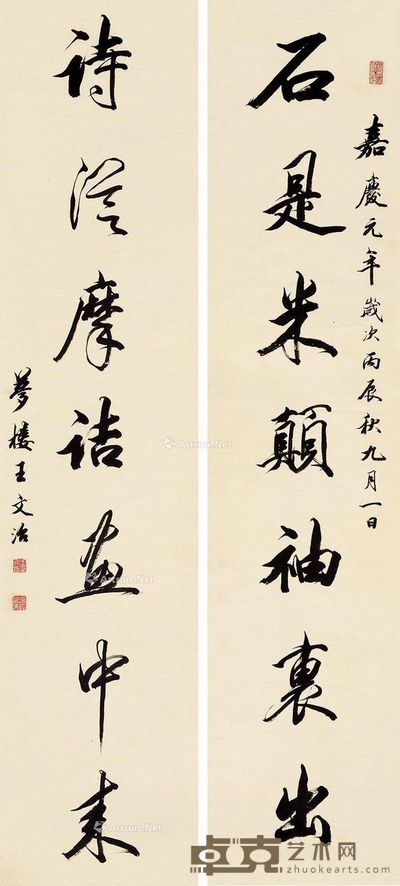 嘉慶元年歲次丙辰秋九月一日
石是米顛袖裏出
詩從摩詰畫中來
夢樓王文治
Artron.Net
Artron.Net
Artron.Net
Artron.Net
卓克艺术网
zhuokearts.com